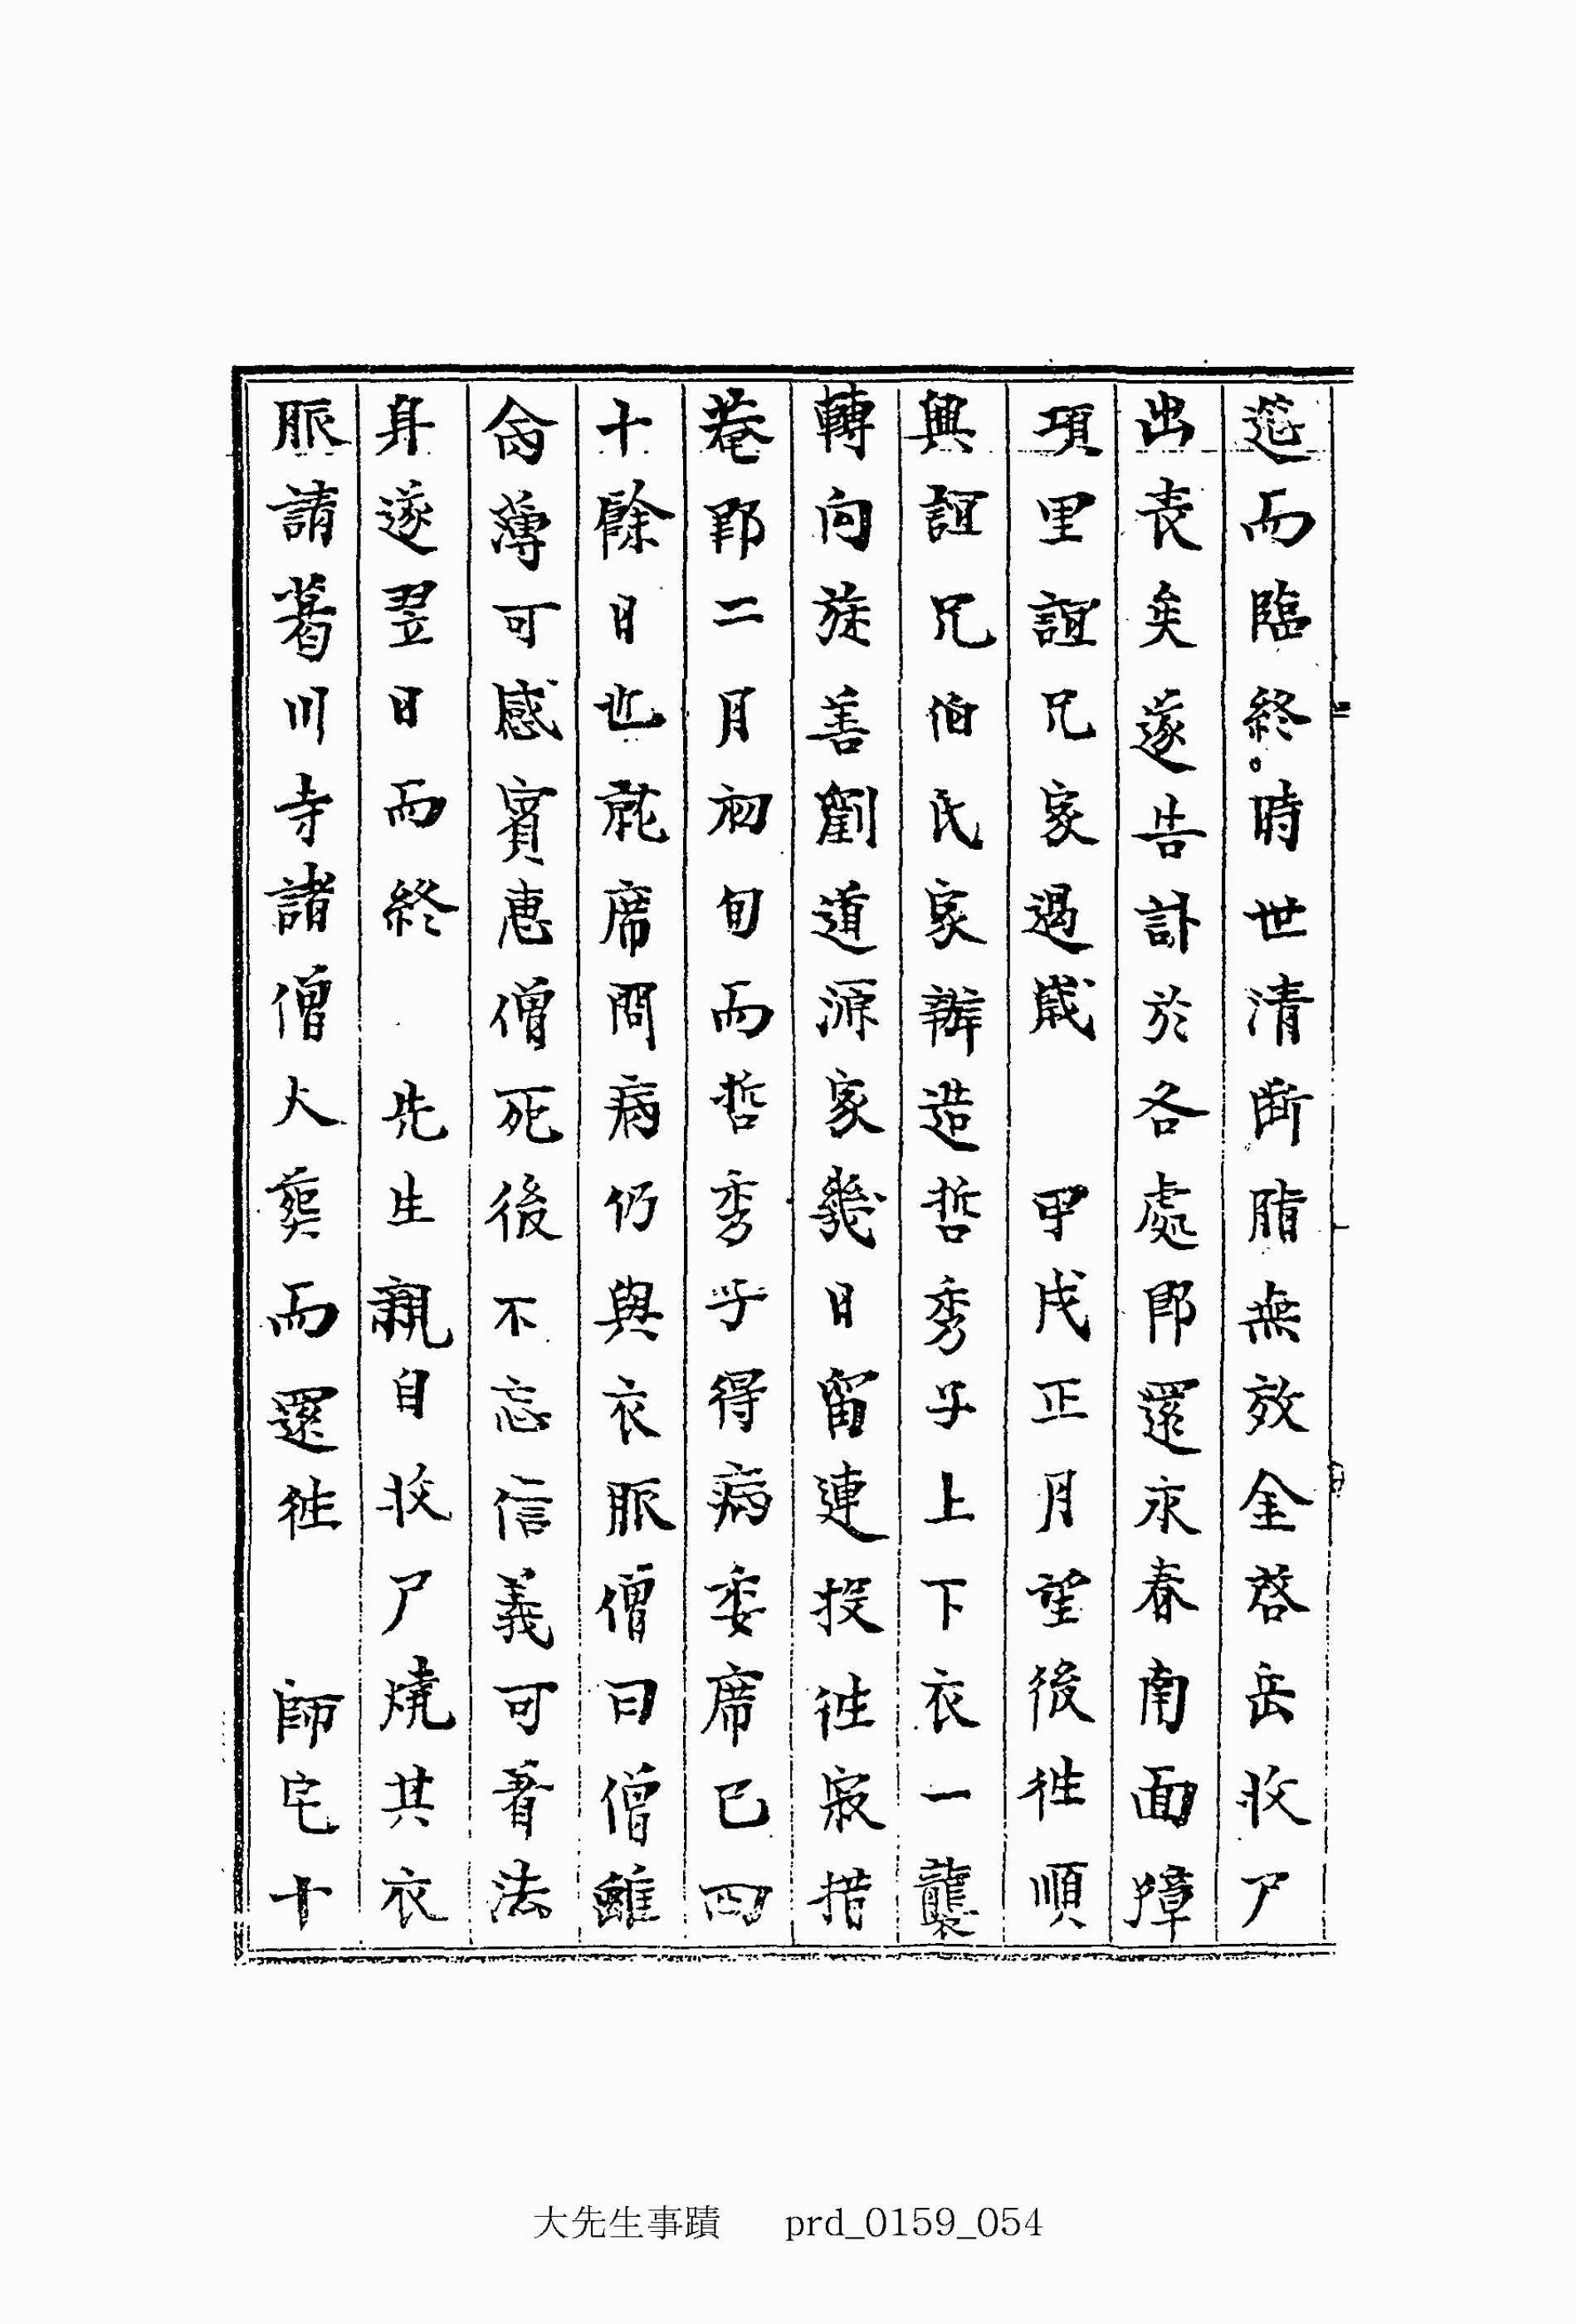 筵而臨終時世清斷脂無效金啓岳收尸
出喪矣遂告訃於各處卽還永春南面獐
項里誼兄家過歲 甲戌正月望後往順
興誼兄伯氏家辦造哲秀子上下衣一襲
轉向旌善劉道源家幾日留連投往寂措
菴卽二月初旬而哲秀子得病委席已四
十餘日也就席問病仍與衣服僧曰僧雖
禽薄可感賓惠僧死後不忘信義可看法
身遂翌日而終 先生親自收尸燒其衣
服請葛川寺諸僧火葬而還往 師宅十
大先生事蹟 prd_0159_054